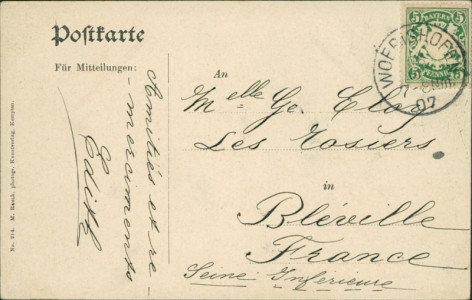 Postkarte
Für Mitteilungen:
Amitiés et re-
-merciments
Edith
Nr. 214. M. Rauch, photogr. Kunstverlag, Kempten.
An
Melle Ge.
Les Rosiers
in
Bléville
France
Seine Inférieure
BAYERN
5 5
5 5
PFENNIG
07